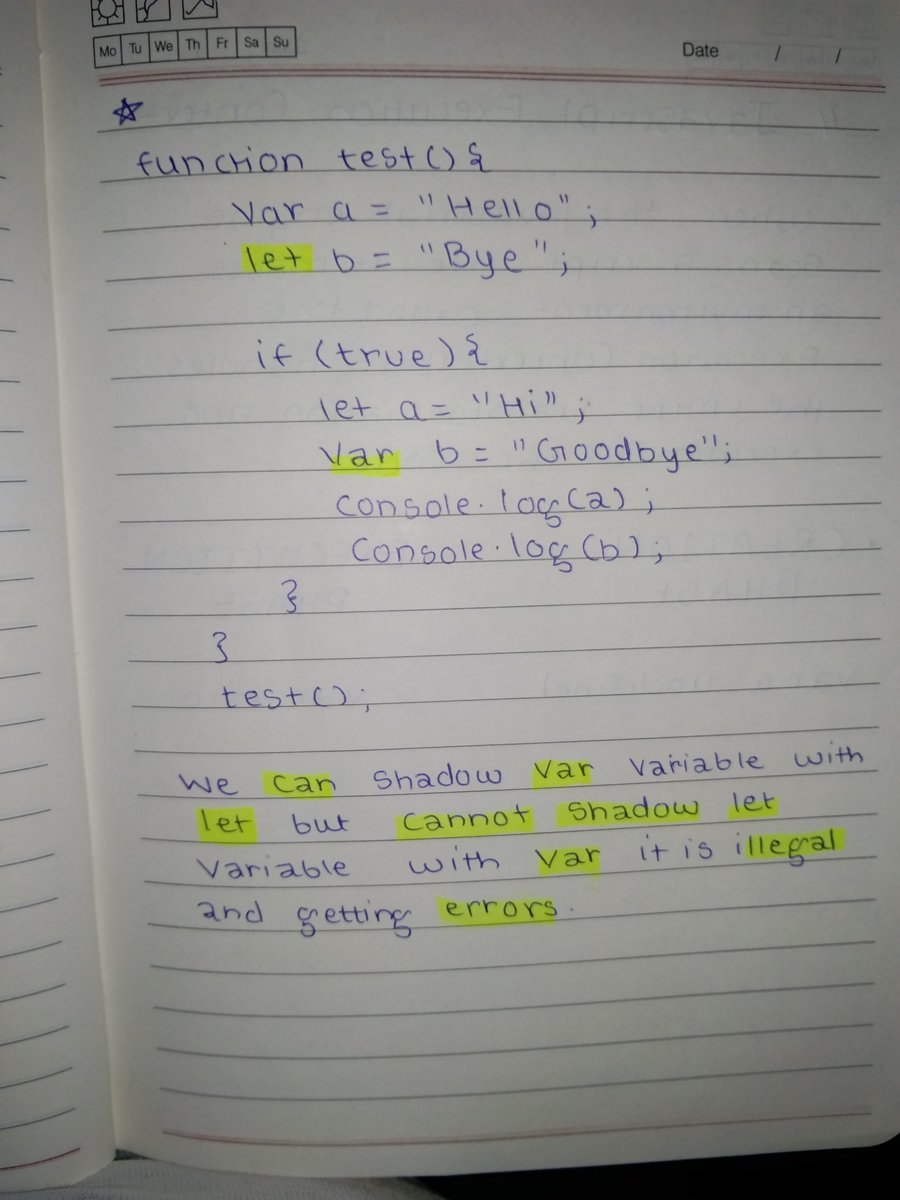 Mo Tu We Th Fr Sa Su
Date / /
function test() {
var a = "Hello" ;
let b = "Bye" ;
if (true) {
let a = "Hi" ;
var b = "Goodbye" ;
console.log(a) ;
console.log(b) ;
}
}
test() ;
We can shadow var variable with
let but cannot shadow let
variable with var it is illegal
and getting errors.